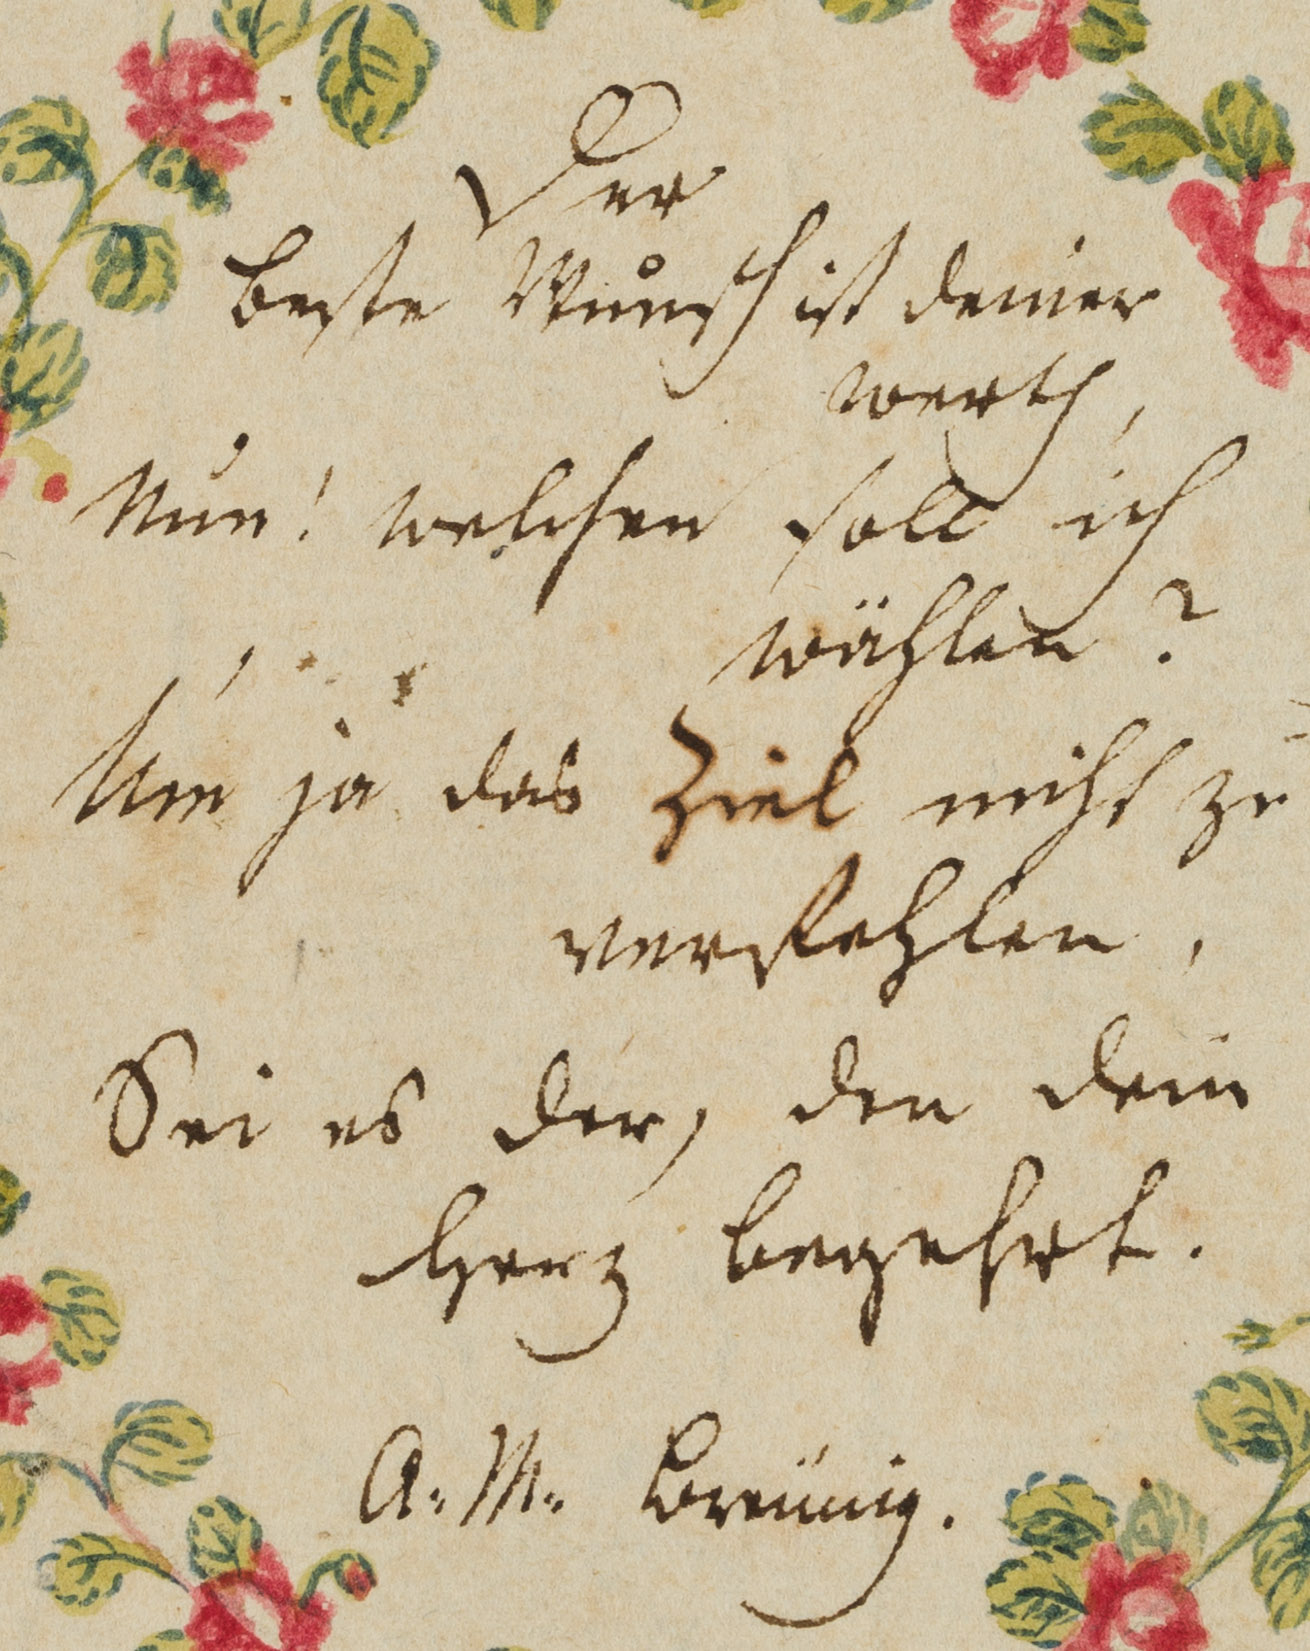 Der
beste Wunsch ist deiner
werth,
Nun! welchen soll ich
wählen?
Um ja das Ziel nicht zu
verfehlen,
Sei es der, den dein
Herz begehrt.
A. M. Breünig.